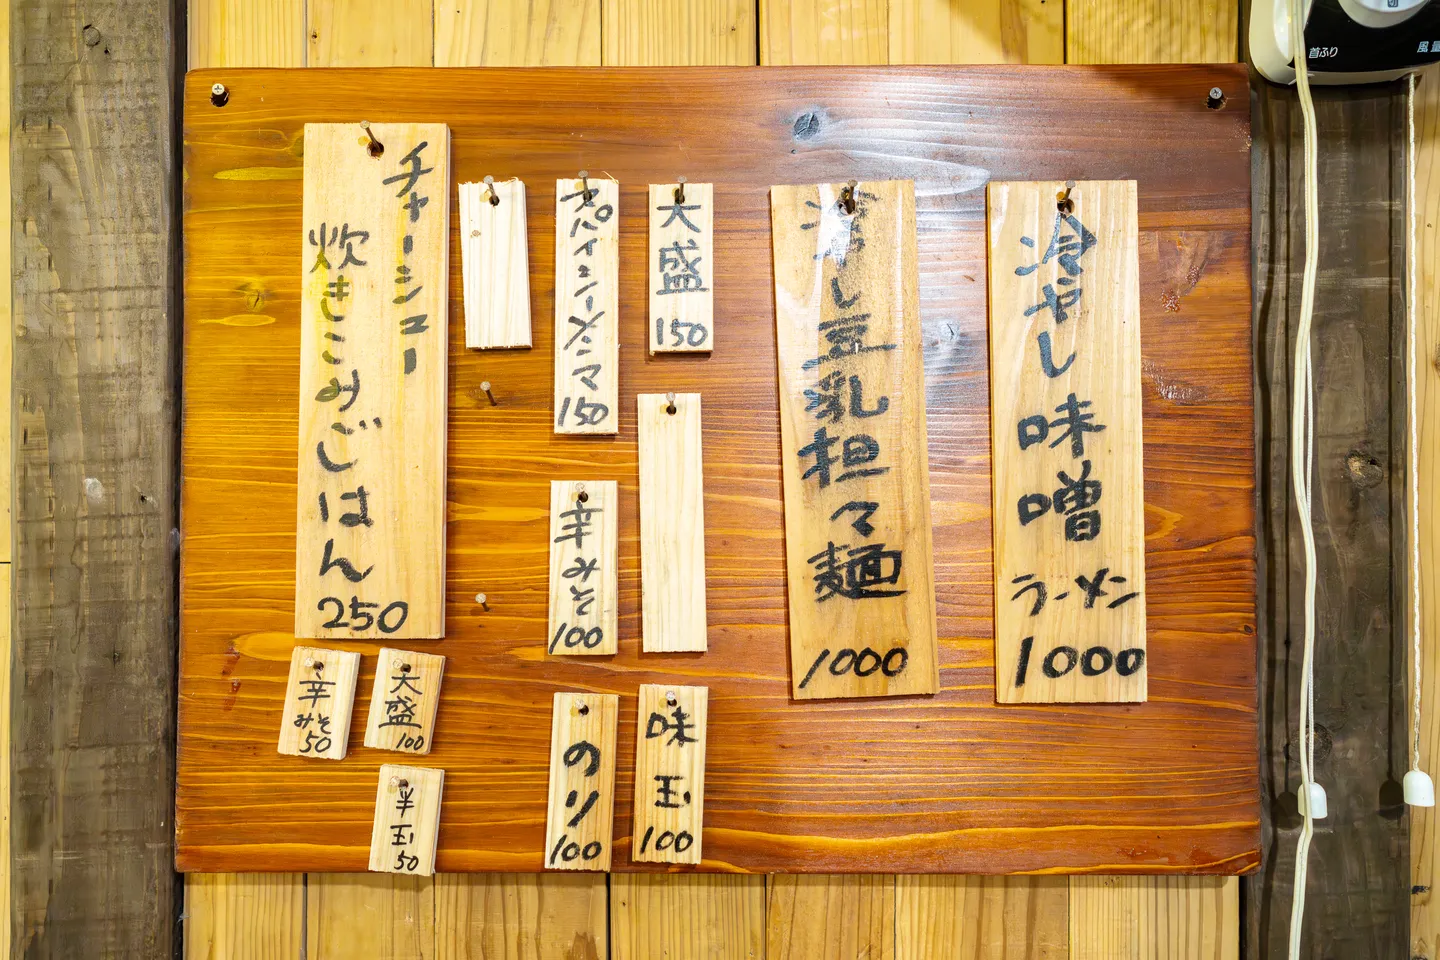 冷やし味噌ラーメン
1000
冷やし豆乳担々麺
1000
大盛
150
スパイシーメンマ
150
辛みそ
100
味玉
100
のり
100
チャーシュー
炊きこみごはん
250
大盛
100
辛みそ
50
半玉
50
首ふり
風量